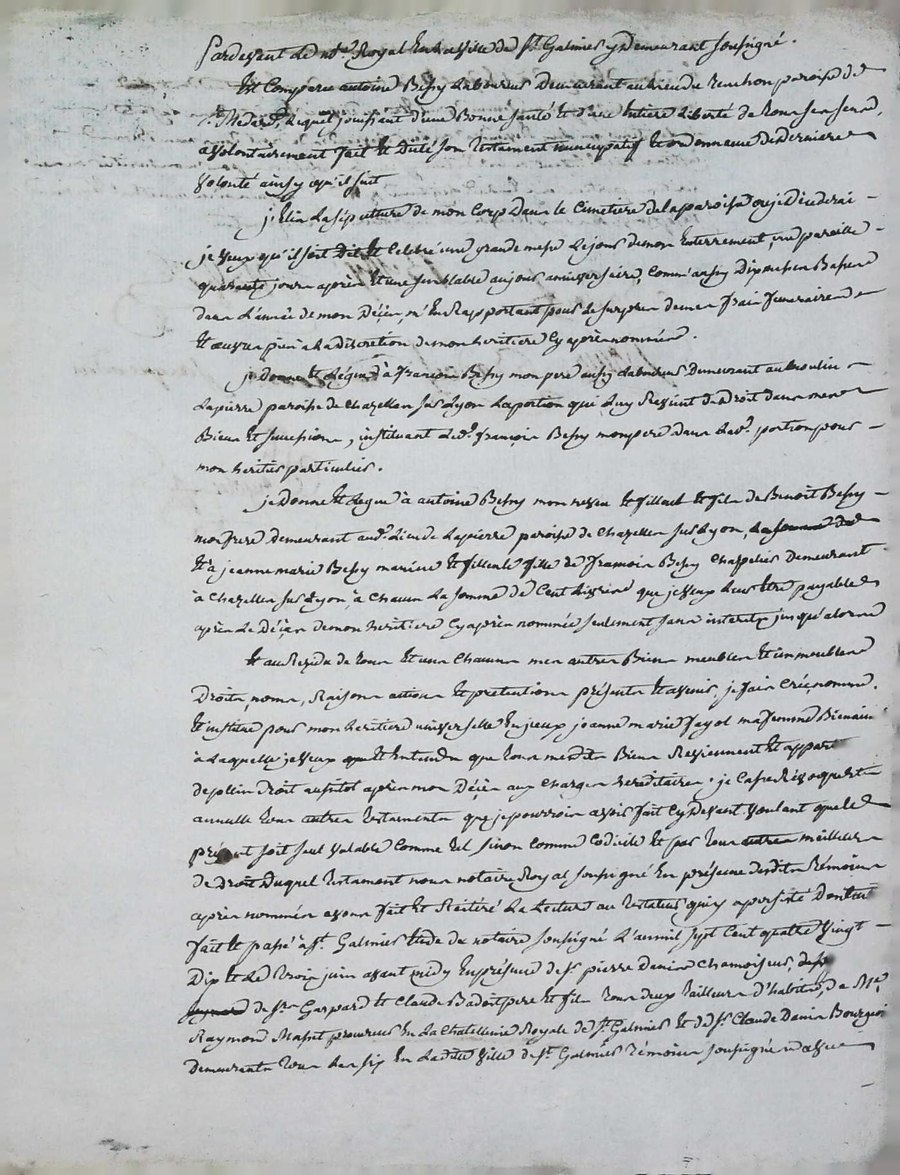 Pardevant le not.re Royal En la ville de S.t Galmier y Demeurant soussigné.
Est Comparu antoine Bessy Laboureur Demeurant au lieu de paroisse de
S.t Medard, Lequel jouissant d'une Bonne santé Et d'une Entiere Liberté de tous ses sens,
a volontairement fait Et Dicté son testament nuncupatif Et ordonnance De Derniere
volonté ainsy qu'il suit
j'Elis La sepulture de mon Corps Dans le Cimetiere de la paroisse ou je Décederai
je veux qu'il soit Dit Et Celebré une grande messe Le jour de mon Enterrement, une pareille
quarante jours après Et une semblable au jour anniversaire, Comm'aussy Dix messes Basses
dans L'année de mon Décès, m'En Rapportant pour Le surplus de mes frais funeraires
Et œuvres pies a La discretion de mon heritiere Cy après nommée.
je donne Et Legue à françois Bessy mon pere aussy Laboureur Demeurant au moulin
Lapierre paroisse de Chazelles sur Lyon La portion qui Luy Revient de Droit dans mes
Biens Et succession, instituant Led.t françois Bessy mon pere dans Lad.te portion pour
mon heritier particulier.
je Donne Et Legue à antoine Bessy mon neveu Et filleul Et fils de Benoit Bessy
mon frere demeurant aud.t Lieu de Lapierre paroisse de Chazelles sur Lyon, La somme de
Et à jeanne marie Bessy ma niece Et filleule fille de françois Bessy Chapelier Demeurant
à Chazelles sur Lyon, à Chacun La somme de Cent Livres que je veux Leur être payables
après Le Décès de mon heritiere Cy après nommée seulement sans interets jusqu'alors
Et au Residu de tous Et uns Chacuns mes autres Biens meubles Et immeubles
Droits, noms, Raisons actions Et pretentions présents Et avenir, je fais Créé, nomme,
Et institue pour mon heritiere universelle jeanne marie fayol ma femme Bienaimée
à Laquelle je veux Et Entends que tous mesdits Biens Reviennent Et
de plein Droit aussitot après mon Décès aux Charges hereditaires. je Casse Révoque Et
annulle tous autres testaments que je pourrois avoir fait Cy Devant voulant que le
présent soit seul valable Comme tel sinon Comme Codicile Et par tous autres meilleurs
de Droit Duquel testament nous notaire Royal soussigné En présence desdits témoins
après nommés avons fait Et Réiteré La Lecture au testateur qui y a persisté Dont acte
fait Et passé à S.t Galmier Etude du notaire soussigné L'an mil sept Cent quatre vingt
Dix Et Le trois juin avant midy En présence de S.r pierre Danis Chamoiseur,
de S.rs Gaspard Et Claude Badoit pere Et fils tous deux tailleurs d'habits, de M.e
Raymond procureur En La Chatellenie Royale de S.t Galmier Et de S.r Claude Danis Bourgeois
demeurants tous Les six En Ladite ville de S.t Galmier témoins soussignés avec